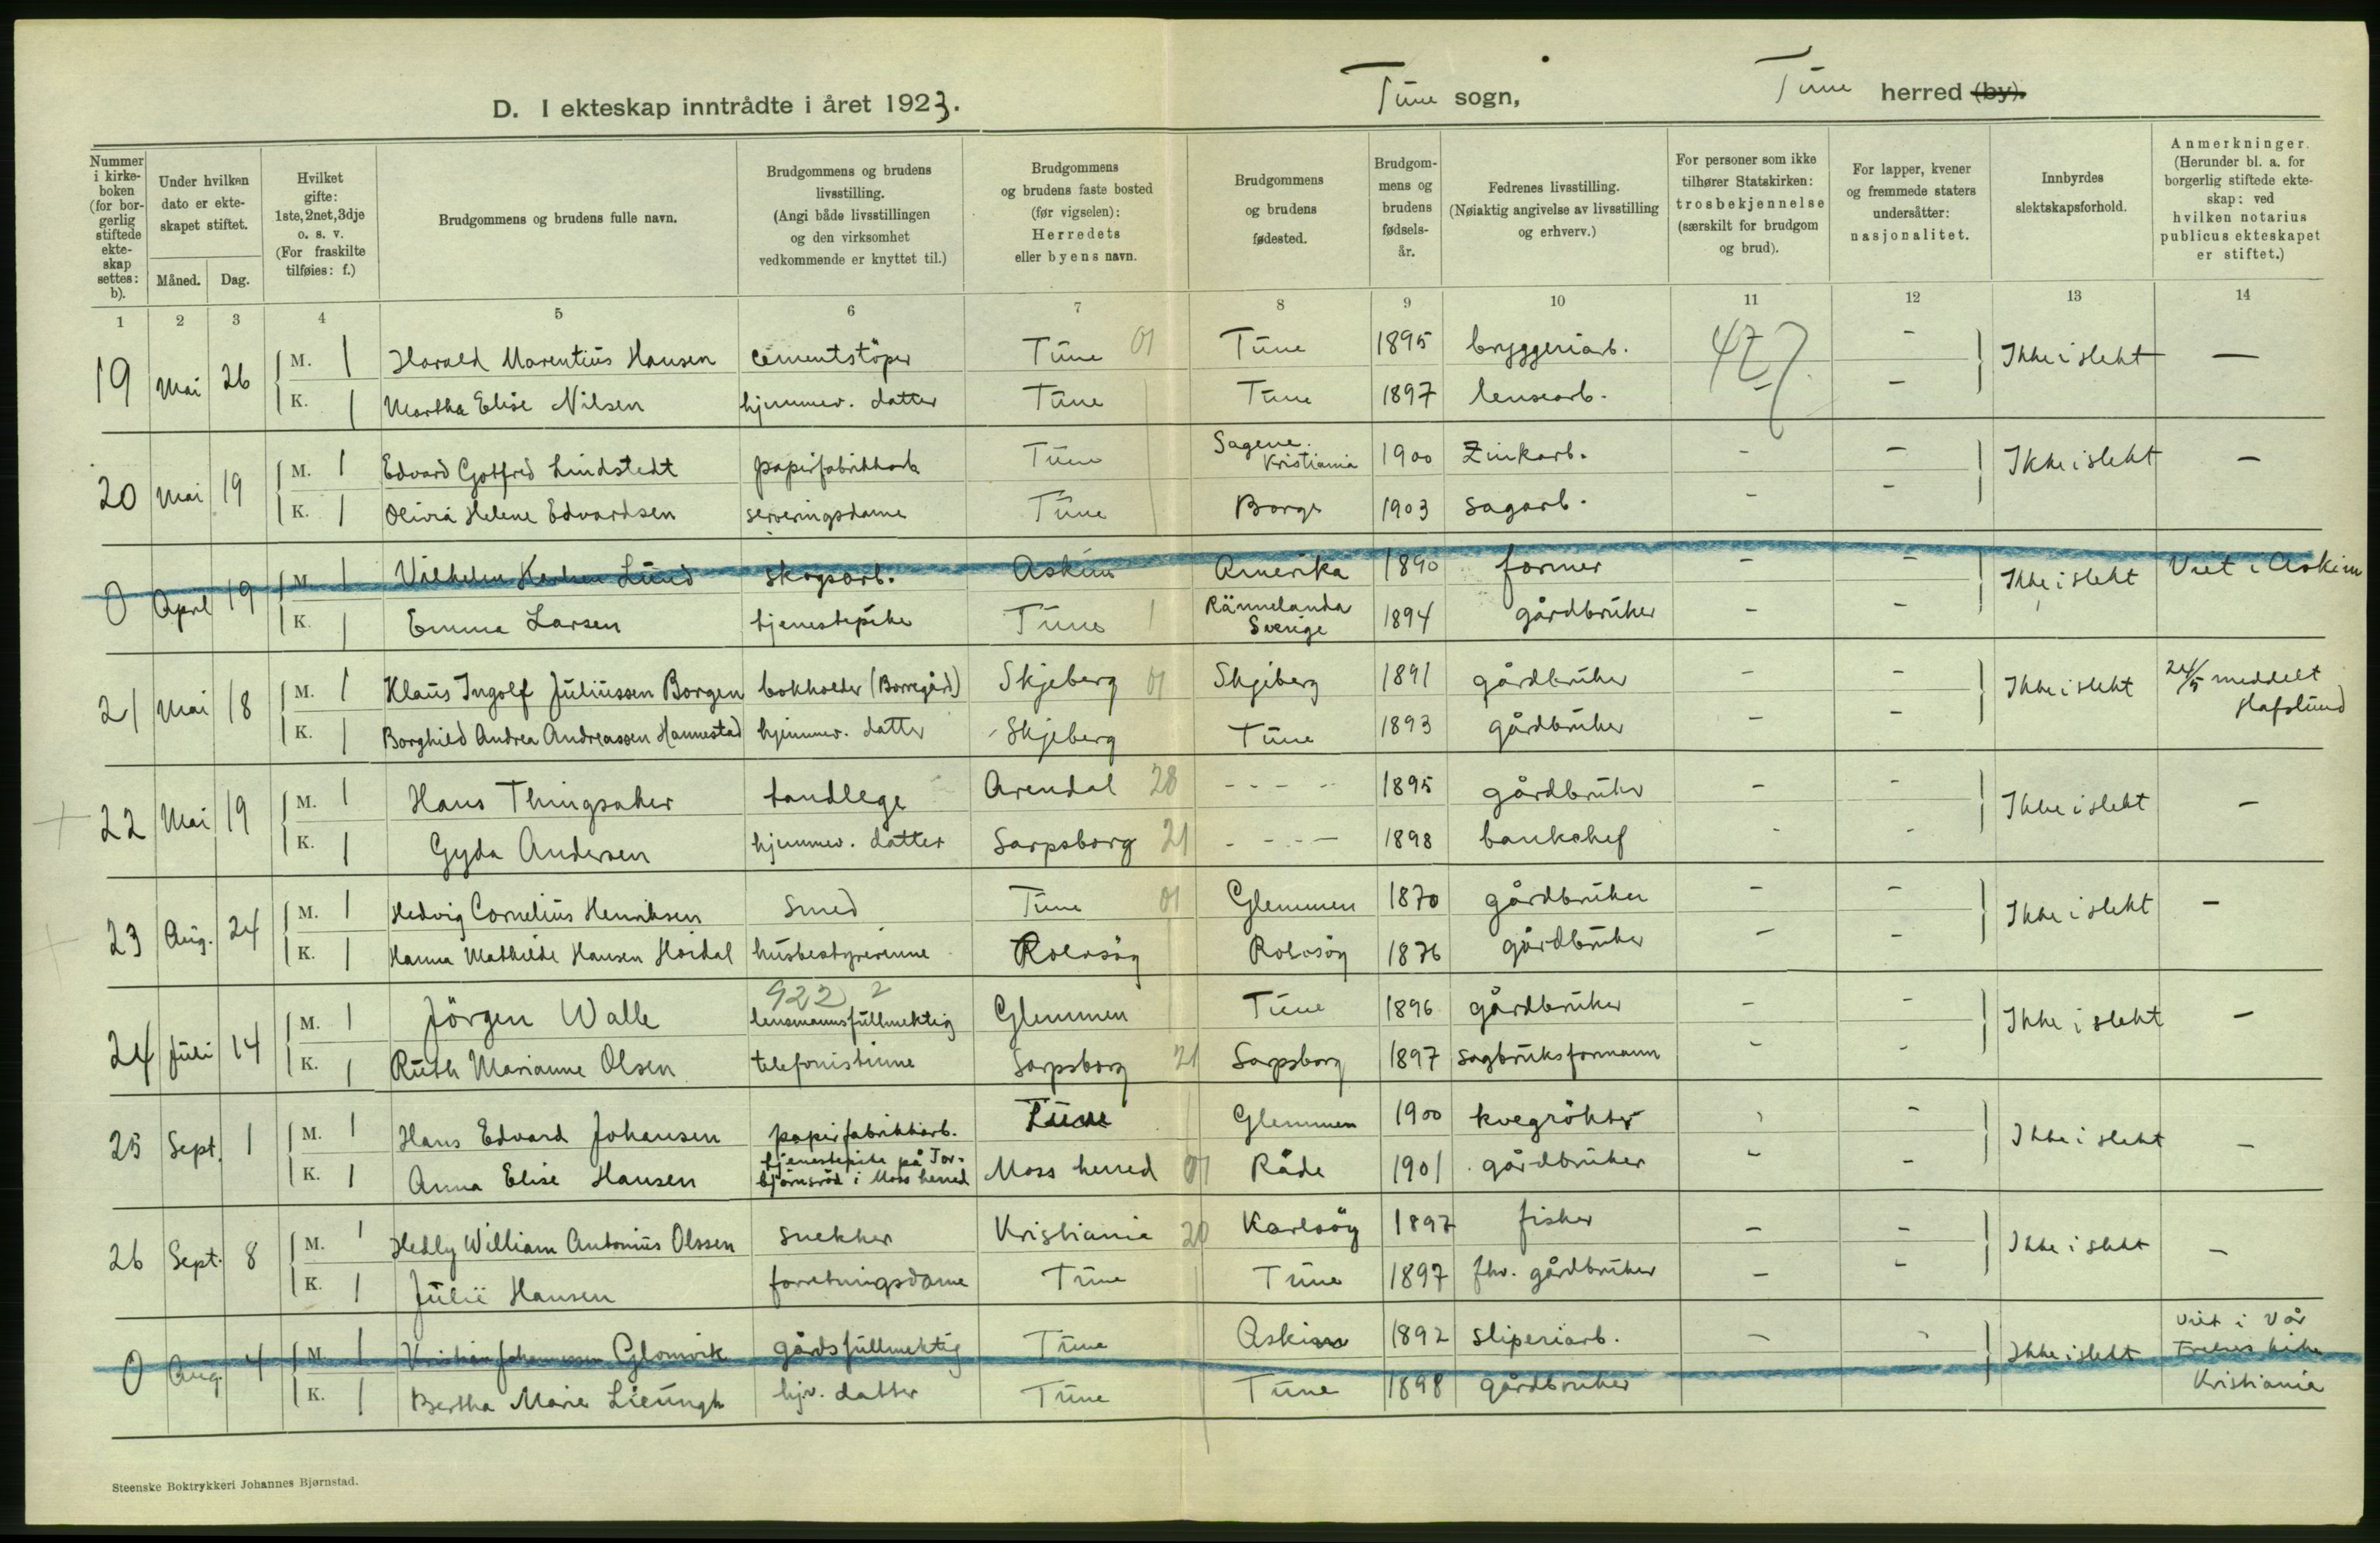 D. I ekteskap inntrådte i året 1923.
Tune sogn,
Tune herred (by).
Nummer i kirkeboken (for borgerlig stiftede ekteskap settes: b).
Under hvilken dato er ekteskapet stiftet.
Måned. Dag.
Hvilket gifte: 1ste, 2net, 3dje o. s. v. (For fraskilte tilføies: f.)
Brudgommens og brudens fulle navn.
Brudgommens og brudens livsstilling. (Angi både livsstillingen og den virksomhet vedkommende er knyttet til.)
Brudgommens og brudens faste bosted (før vigselen): Herredets eller byens navn.
Brudgommens og brudens fødested.
Brudgommens og brudens fødsels-år.
Fedrenes livsstilling. (Nøiaktig angivelse av livsstilling og erhverv.)
For personer som ikke tilhører Statskirken: trosbekjennelse (særskilt for brudgom og brud).
For lapper, kvener og fremmede staters undersåtter: nasjonalitet.
Innbyrdes slektskapsforhold.
Anmerkninger. (Herunder bl. a. for borgerlig stiftede ekteskap: ved hvilken notarius publicus ekteskapet er stiftet.)
1 2 3 4 5 6 7 8 9 10 11 12 13 14
19 Mai 26 M. 1 Harald Marentius Hansen cementstöper Tune 01 Tune 1895 bryggeriarb. 47 - Ikke i slekt —
K. 1 Martha Elise Nilsen hjemmev. datter Tune Tune 1897 lensearb. - -
20 Mai 19 M. 1 Edvard Gotfred Lindstedt papirfabrikkarb Tune Sagene Kristiania 1900 Zinkarb. - - Ikke i slekt -
K. 1 Olivia Helene Edvardsen serveringsdame Tune Borge 1903 sagarb. - -
0 April 19 M. 1 Vilhelm Karlsen Lund skogsarb. Askim Amerika 1890 farmer - - Ikke i slekt Viet i Askim
K. 1 Emma Larsen tjenestepike Tune 1 Rännelanda Sverige 1894 gårdbruker - -
21 Mai 18 M. 1 Klaus Ingolf Juliussen Borgen bokholder (Borregård) Skjeberg 01 Skjeberg 1891 gårdbruker - - Ikke i slekt 24/5 meddelt Hafslund
K. 1 Borghild Andrea Andreassen Hannestad hjemmev. datter Skjeberg Tune 1893 gårdbruker - -
22 Mai 19 M. 1 Hans Thingsaker tandlege Arendal 28 - - - - 1895 gårdbruker - - Ikke i slekt -
K. 1 Gyda Andersen hjemmev. datter Sarpsborg 21 - - - - 1898 bankchef - -
23 Aug. 24 M. 1 Hedvig Cornelius Henriksen Smed Tune 01 Glemmen 1870 gårdbruker - - Ikke i slekt -
K. 1 Hanna Mathilde Hansen Hoidal husbestyrerinne Rolvsöy Rolvsöy 1876 gårdbruker - -
922 2
24 Juli 14 M. 1 Jörgen Walle lensmannsfullmektig Glemmen Tune 1896 gårdbruker - - Ikke i slekt -
K. 1 Ruth Marianne Olsen telefonistinne Sarpsborg 21 Sarpsborg 1897 sagbruksformann - -
25 Sept. 1 M. 1 Hans Edvard Johansen papirfabrikkarb. Tune Glemmen 1900 kvegrökter - - Ikke i slekt -
K. 1 Anna Elise Hansen tjenestepike på Torbjörnsröd i Moss herred Moss herred 01 Råde 1901 gårdbruker - -
26 Sept. 8 M. 1 Hedly William Antonius Olssen snekker Kristiania 20 Karlsöy 1897 fisker - - Ikke i slekt -
K. 1 Julie Hansen forretningsdame Tune Tune 1897 fhv. gårdbruker - -
0 Aug. 4 M. 1 Kristian Johannessen Glomvik gårdsfullmektig Tune Askim 1892 sliperiarb. - - Ikke i slekt Viet i Vår Frelsers kirke Kristiania
K. 1 Bertha Marie Lieungh hjv. datter Tune Tune 1898 gårdbruker
Steenske Boktrykkeri Johannes Bjørnstad.